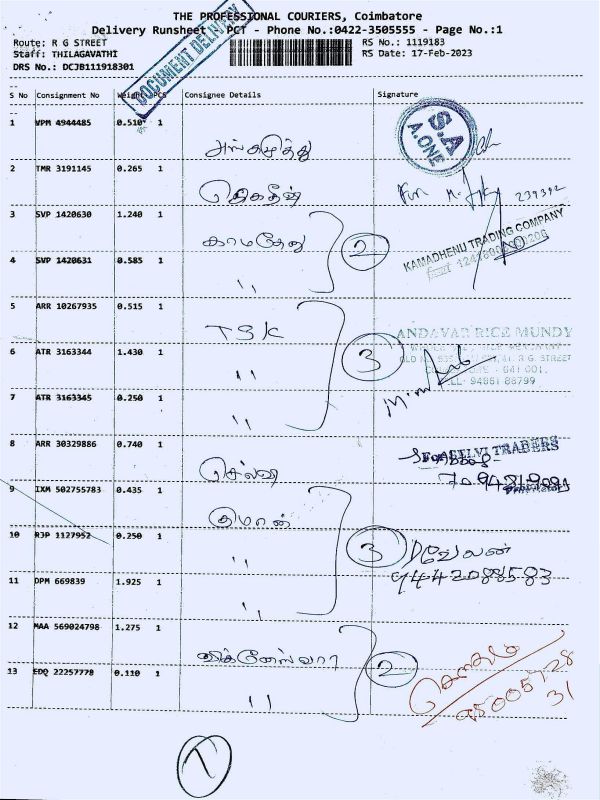 THE PROFESSIONAL COURIERS, Coimbatore
Delivery Runsheet - PCT - Phone No.:0422-3505555 - Page No.:1
Route: R G STREET
RS No.: 1119183
Staff: THILAGAVATHI
RS Date: 17-Feb-2023
DRS No.: DCJB111918301
DOCUMENT DELIVERY
S No Consignment No Weight PCS Consignee Details Signature
1 VPM 4944485 0.510 1
S.A
A.ONE
2 TMR 3191145 0.265 1
ஜெகதீஷ்
For
3 SVP 1420630 1.240 1
காமதேனு
2
KAMADHENU TRADING COMPANY
4 SVP 1420631 0.585 1
"
5 ARR 10267935 0.515 1
TSK
ANDAVAR RICE MUNDY
6 ATR 3163344 1.430 1
"
3
R.G. STREET
641 001.
CELL: 94861 88799
7 ATR 3163345 0.250 1
"
8 ARR 30329886 0.740 1
செல்வி
SELVI TRADERS
9 IXM 502755783 0.435 1
குமரன்
10 RJP 1127952 0.250 1
"
3
வேலன்
9442088583
11 DPM 669839 1.925 1
"
12 MAA 569024798 1.275 1
விக்னேஸ்வரா
2
13 EDQ 22257778 0.110 1
"
9500572831
7